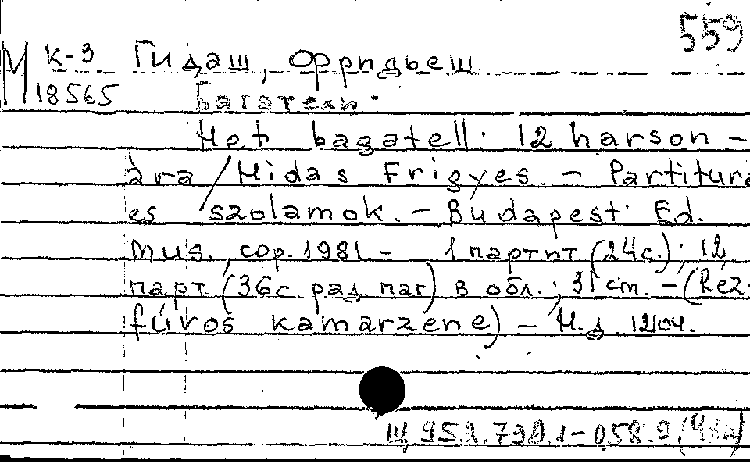 559
М К-3 Гидаш, Фридьеш
18565 Багатели.
Het bagatell. 12 harson-
ára / Hidas Frigyes. - Partitura
és szólamok. - Budapest: Ed.
Mus., cop. 1981 - 1 партит (24с.); 12
парт (36с разд паг) в обл.; 31 cm. - (Réz-
fúvós kamarzene) - Н.д. 12104.